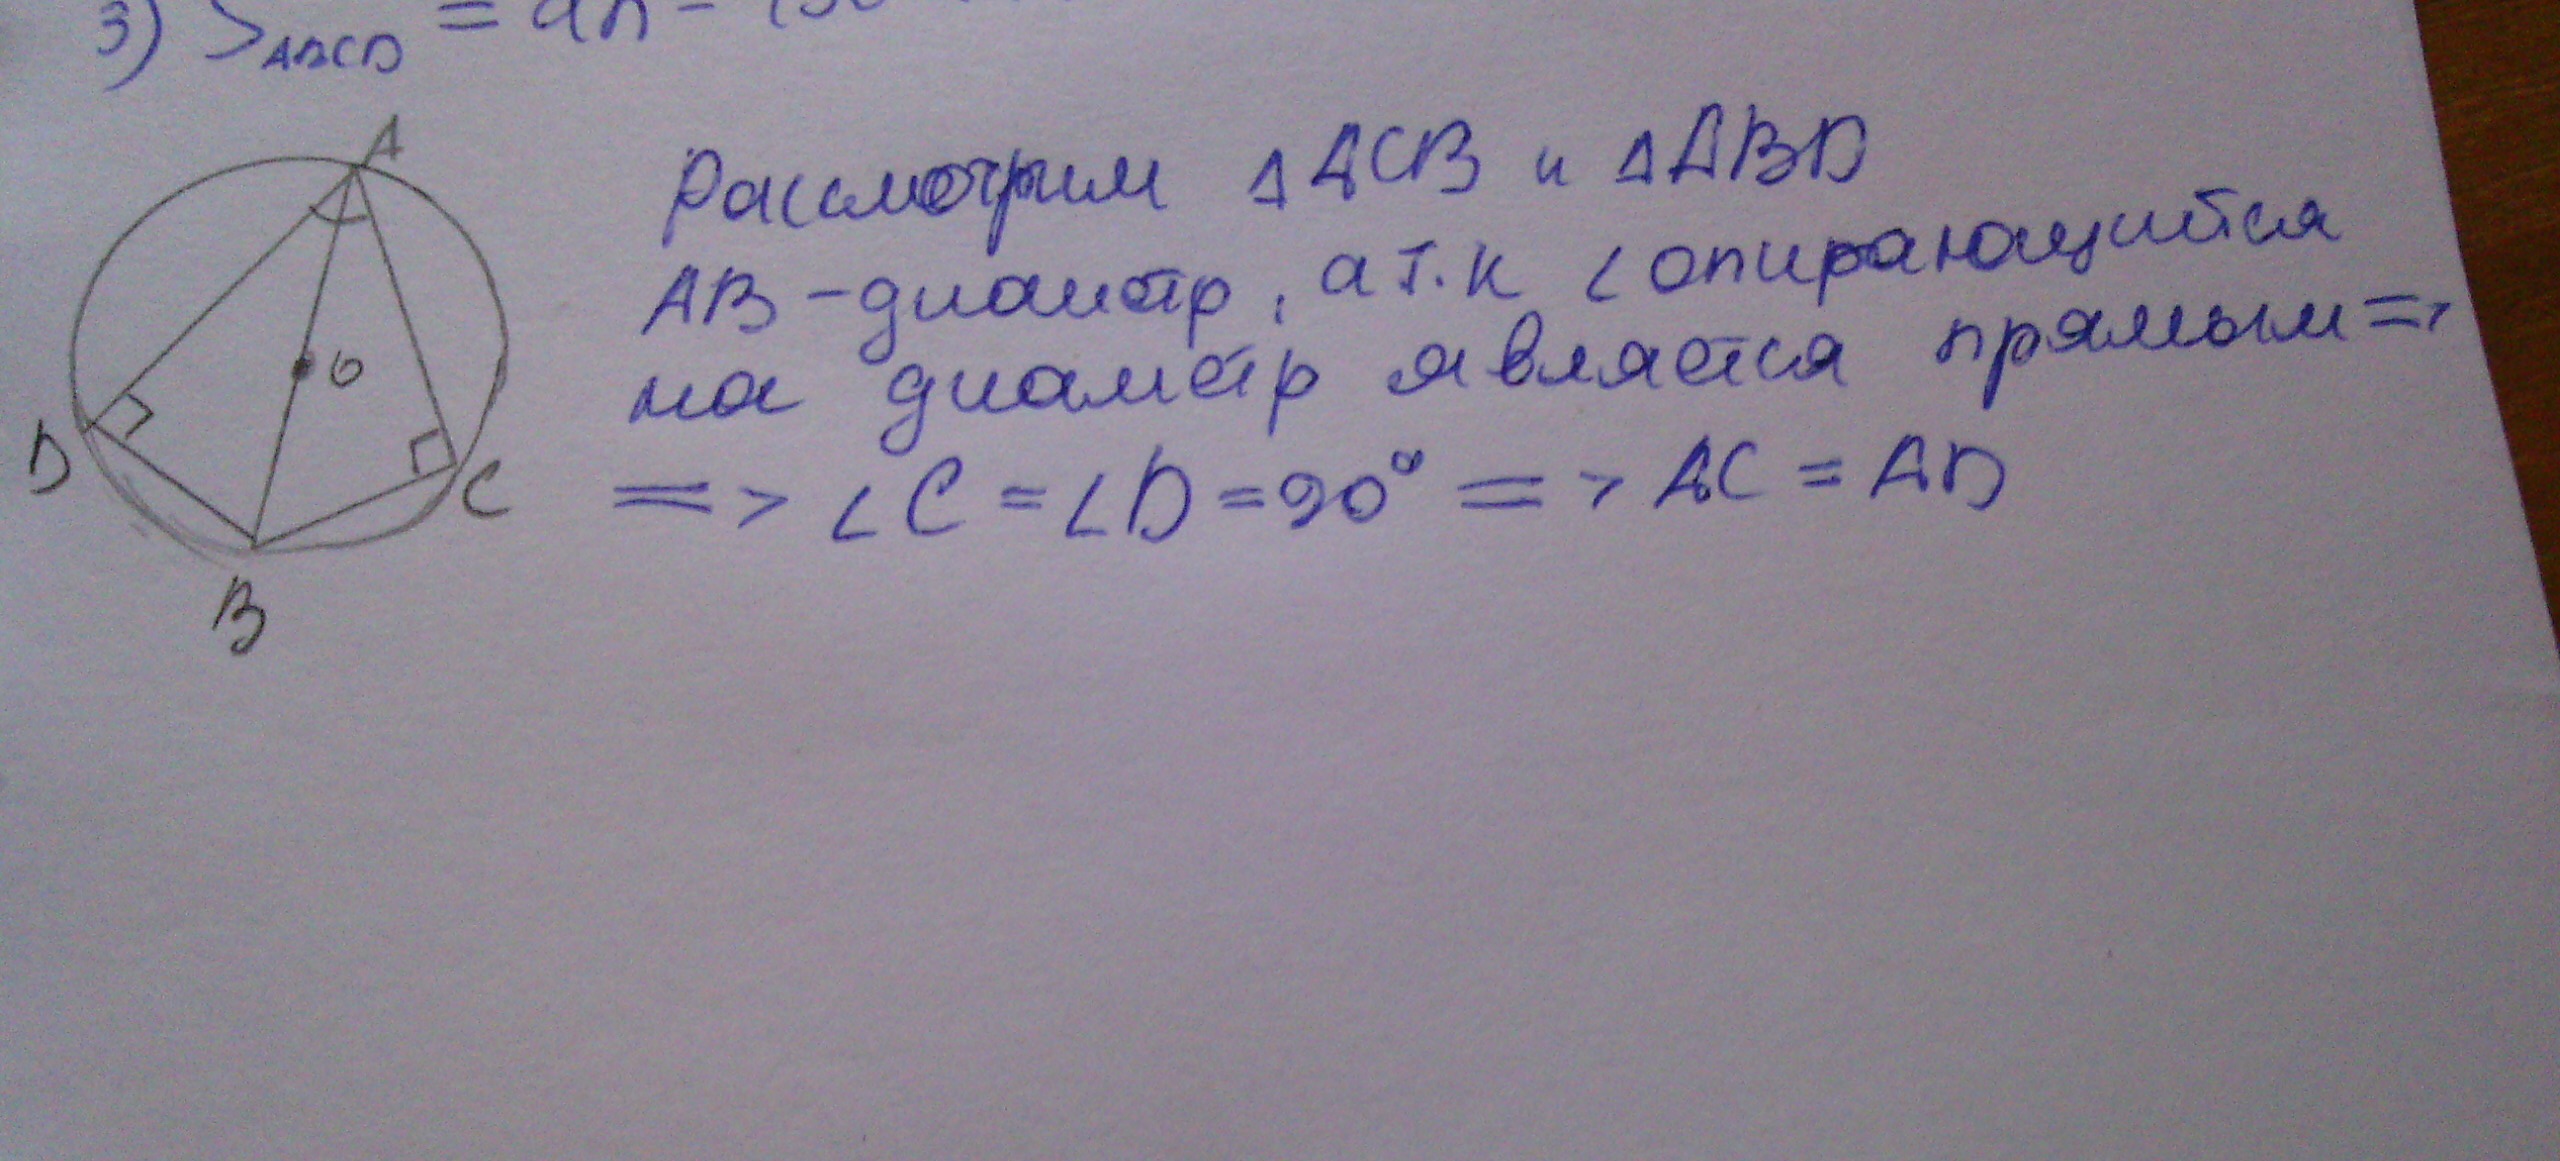 3) S ABCD = ah =
A
Рассмотрим ΔACB и ΔABD
AB - диаметр, а т.к ∠ опирающийся
на диаметр является прямым =>
O
D
C
=> ∠C = ∠D = 90° => AC = AD
B